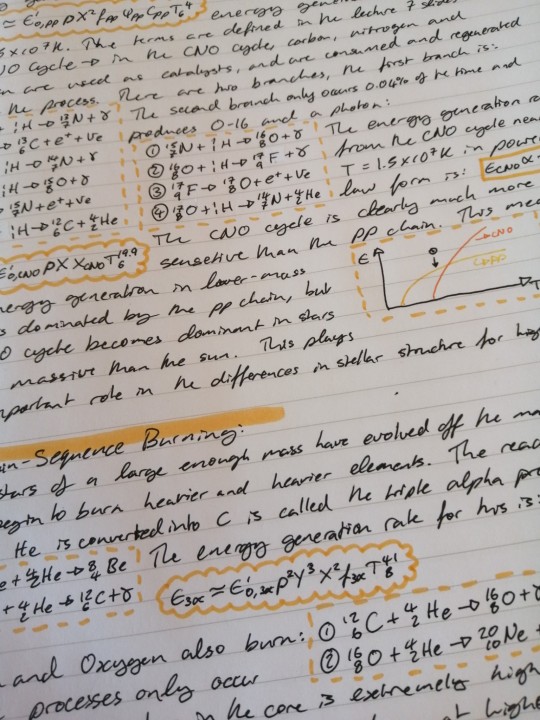 ≃ E'0,PP ρX² fPP ΨPP CPP T₆⁴ energy gene
5×10⁷K. The terms are defined in the lecture 7 slide
NO Cycle → in the CNO cycle, carbon, nitrogen and
n are used as catalysts, and are consumed and regenerated
the process. There are two branches, the first branch is:
The second branch only occurs 0.04% of the time and
produces O-16 and a photon:
+ ¹₁H → ¹³₇N + γ
→ ¹³₆C + e⁺ + νe
¹₁H → ¹⁴₇N + γ
¹₁H → ¹⁵₈O + γ
→ ¹⁵₇N + e⁺ + νe
¹₁H → ¹²₆C + ⁴₂He
① ¹⁵₇N + ¹₁H → ¹⁶₈O + γ
② ¹⁶₈O + ¹₁H → ¹⁷₉F + γ
③ ¹⁷₉F → ¹⁷₈O + e⁺ + νe
④ ¹⁷₈O + ¹₁H → ¹⁴₇N + ⁴₂He
The energy generation ra
from the CNO cycle nea
T = 1.5×10⁷K in power
law form is: ECNO ∝
E'0,CNO ρX XCNO T₆^19.9
The CNO cycle is clearly much more
sensetive than the pp chain. This mea
nergy generation in lower-mass
s dominated by the pp chain, but
O cycle becomes dominant in stars
massive than the sun. This plays
mportant role in the differences in stellar structure for hig
E
CNO
T
in-Sequence Burning:
stars of a large enough mass have evolved off the ma
begin to burn heavier and heavier elements. The reac
He is converted into C is called the triple alpha pro
The energy generation rate for this is:
e + ⁴₂He → ⁸₄Be
+ ⁴₂He → ¹²₆C + γ
E3α ≃ E'0,3α ρ²Y³X²f3αT₈⁴¹
and Oxygen also burn:
① ¹²₆C + ⁴₂He → ¹⁶₈O + γ
② ¹⁶₈O + ⁴₂He → ²⁰₁₀Ne +
processes only occur
the core is extremely high